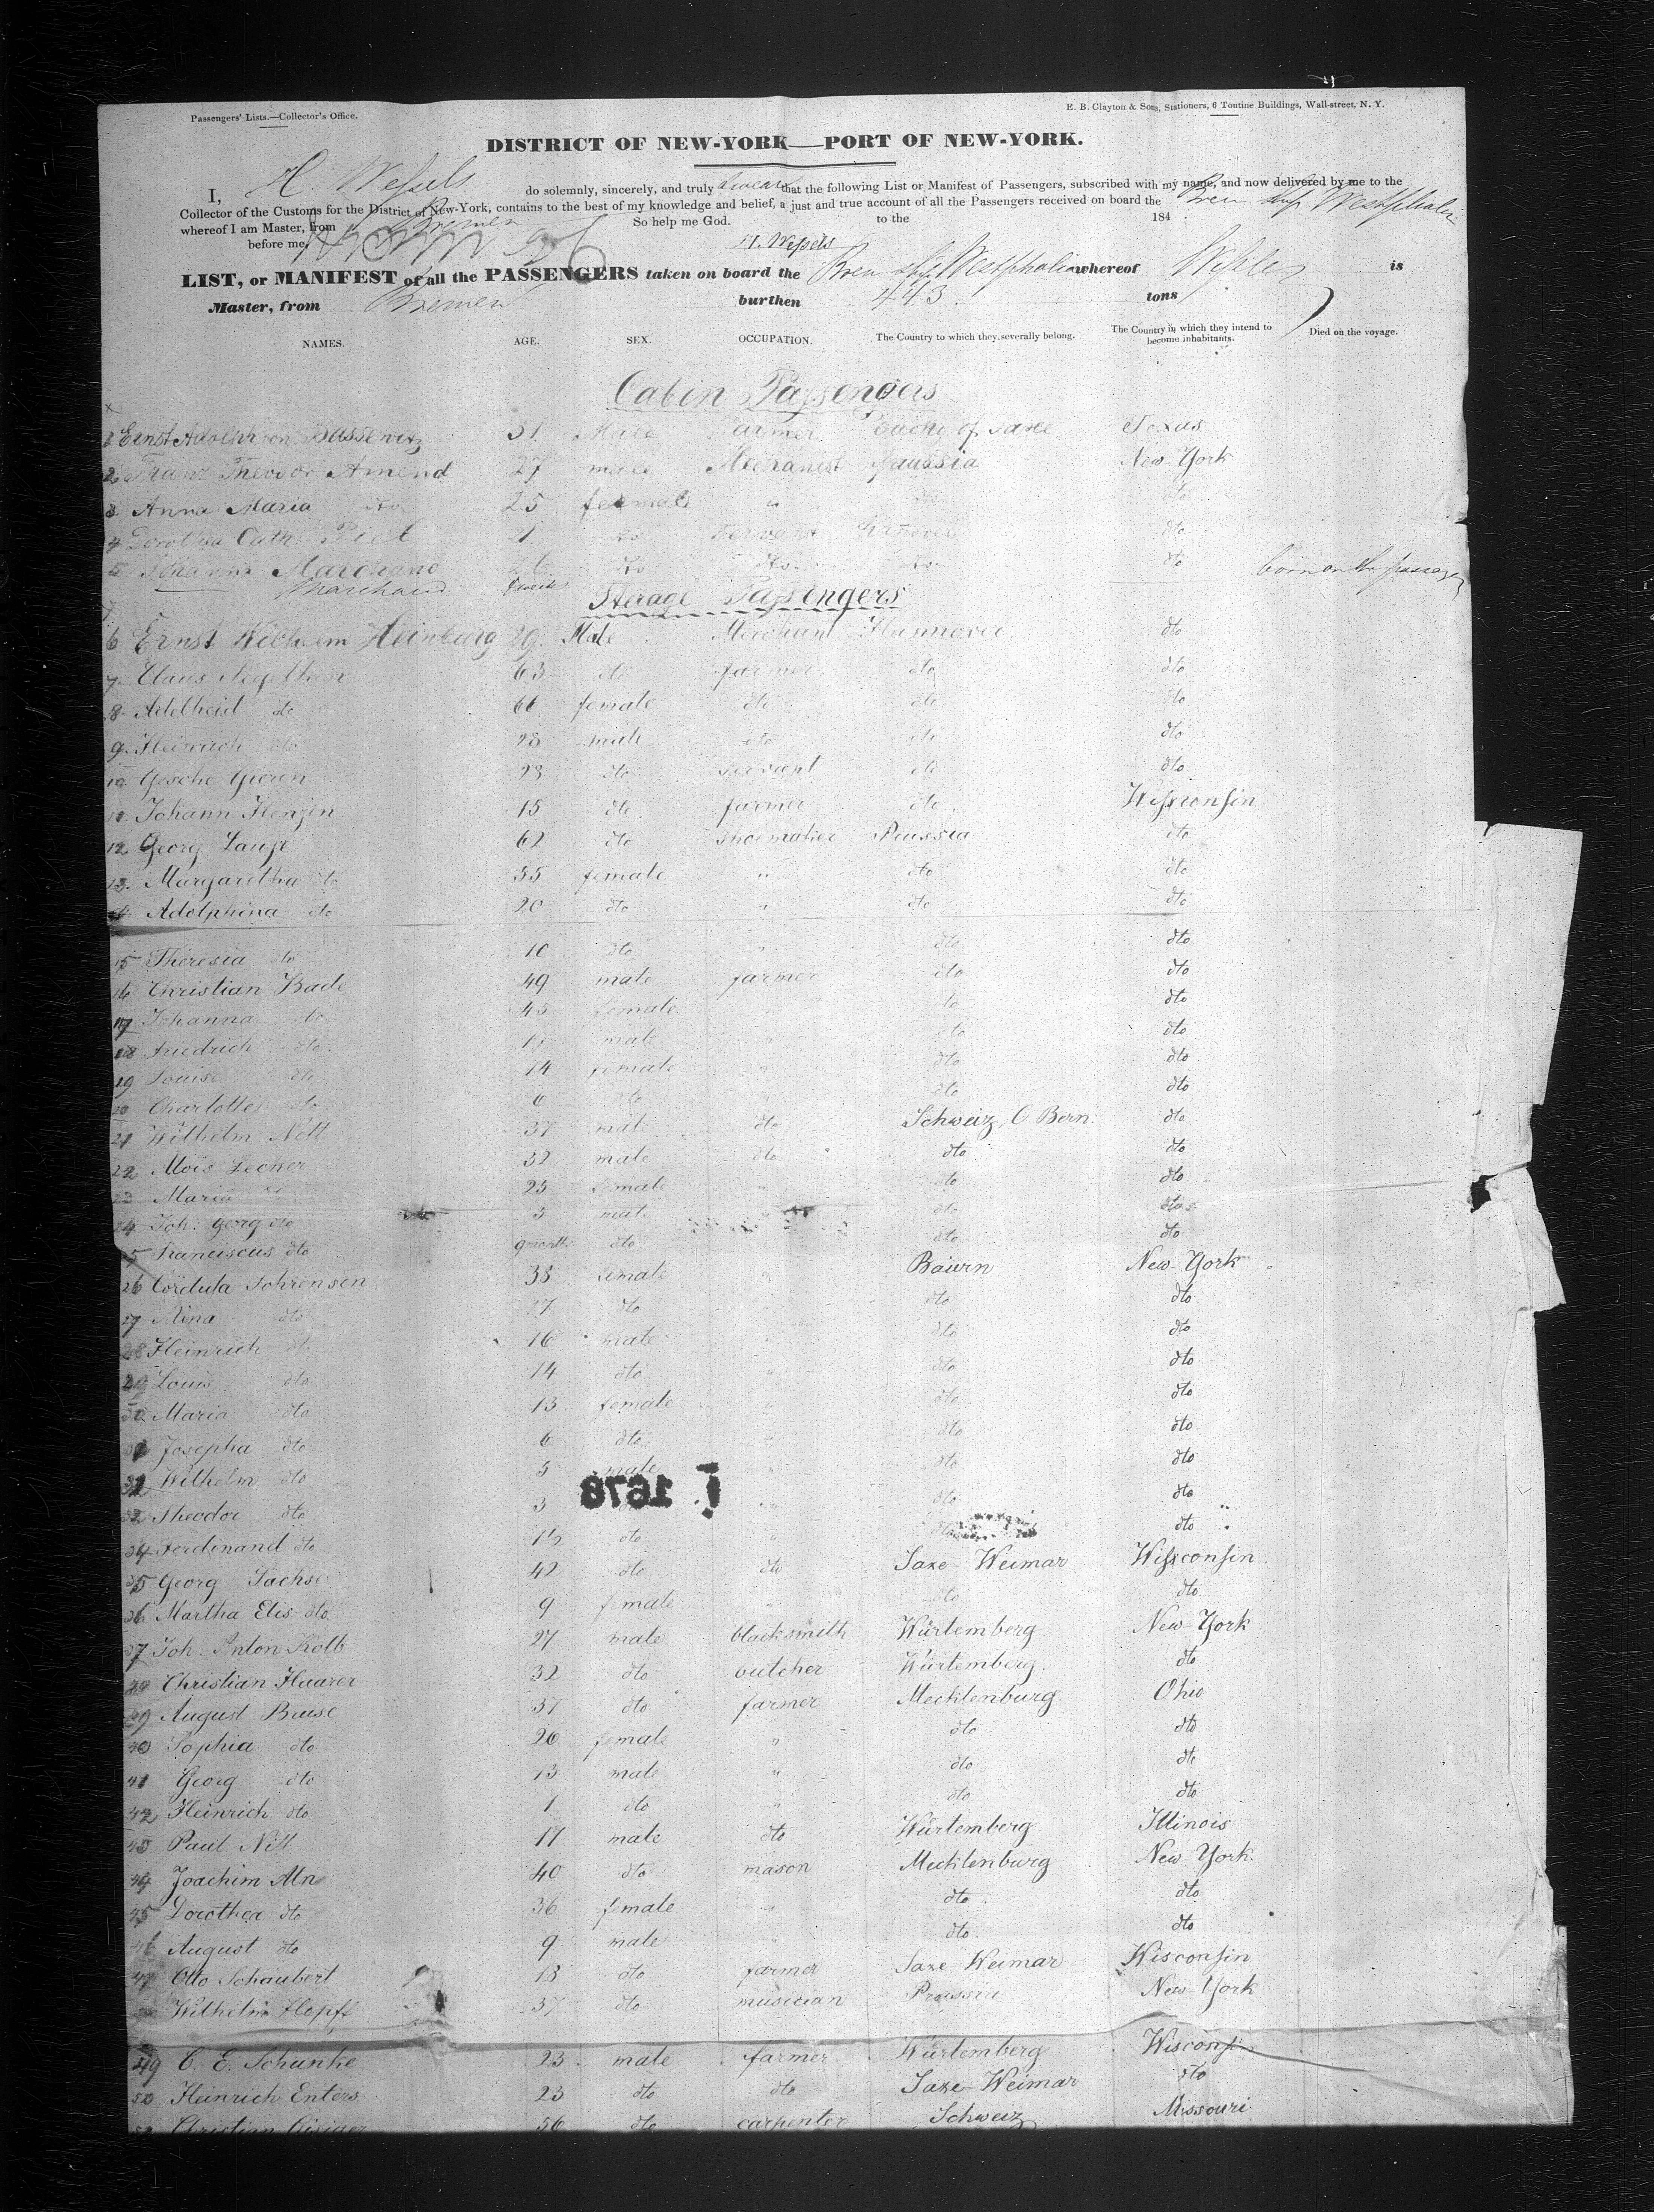 Passengers' Lists.—Collector's Office.
E. B. Clayton & Sons, Stationers, 6 Tontine Buildings, Wall-street, N. Y.
DISTRICT OF NEW-YORK—PORT OF NEW-YORK.
I, H. Wessels do solemnly, sincerely, and truly swear that the following List or Manifest of Passengers, subscribed with my name, and now delivered by me to the
Collector of the Customs for the District of New-York, contains to the best of my knowledge and belief, a just and true account of all the Passengers received on board the Brem Ship Westphalia
whereof I am Master, from Bremen So help me God. to the 184
before me, H. Wessels
LIST, or MANIFEST of all the PASSENGERS taken on board the Brem ship Westphalia whereof Wessels is
Master, from Bremen burthen 443 tons
NAMES. AGE. SEX. OCCUPATION. The Country to which they severally belong. The Country in which they intend to become inhabitants. Died on the voyage.
Cabin Passengers
1 Ernst Adolph von Bassewitz 31 Male Farmer of Saxe Texas
2 Franz Theodor Amend 27 male Mechanist Prussia New York
3 Anna Maria dto 25 female " dto dto
4 Dorothea Cath. Piel 21 dto Servant Hannover dto
5 Johanna Marchand dto dto dto dto
Marchand born on the passage
Sterage Passengers
6 Ernst Wilhelm Heinburg 29. Male Merchant Hannover dto
7. Claus Segelken 63 dto farmer dto dto
8. Adelheid do 66 female dto dto dto
9. Heinrich dto 28 male dto dto dto
10 Gesche Gieren 23 dto servant dto dto
11. Johann Henjen 15 dto farmer dto Wisconsin
12 Georg Lauje 62 dto shoemaker Prussia dto
13. Margaretha dto 55 female " dto dto
14 Adolphina dto 20 dto " dto dto
15 Theresia dto 10 dto " dto dto
16 Christian Bade 49 male farmer dto dto
17 Johanna dto 45 female " dto dto
18 Friedrich dto male " dto dto
19 Louise dto 14 female " dto dto
20 Charlotte dto 6 dto " dto dto
21 Wilhelm Nött 37 male dto Schweiz, C Bern. dto
22 Alois Lecher 32 male dto dto dto
23 Maria 25 female " dto dto
24 Joh: Georg dto 3 male dto dto
25 Franciscus dto 9 months dto dto dto
26 Cordula Sohrensen 38 female " Baiern New York
27 Nina dto 17 dto dto dto
28 Heinrich dto 16 male " dto dto
29 Louis dto 14 dto " dto dto
30 Maria dto 13 female " dto dto
31 Josepha dto 6 dto " dto dto
32 Wilhelm dto 5 male " dto dto
33 Theodor dto 3 " dto dto
34 Ferdinand dto 1 1/2 dto " dto dto
35 Georg Sachse 42 dto dto Saxe-Weimar Wisconsin
36 Martha Elis dto 9 female " dto dto
37 Joh. Anton Kolb 27 male blacksmith Würtemberg New York
38 Christian Haarer 32 dto butcher Würtemberg dto
39 August Buuse 37 dto farmer Mecklenburg Ohio
40 Sophia dto 26 female " dto dto
41 Georg dto 13 male " dto dto
42 Heinrich dto 1 dto " dto dto
43 Paul Nill 17 male dto Würtemberg Illinois
44 Joachim Aln 40 dto mason Mecklenburg New York
45 Dorothea dto 36 female " dto dto
46 August dto 9 male " dto dto
47 Otto Schaubert 18 dto farmer Saxe-Weimar Wisconsin
48 Wilhelm Hopff 37 dto musician Prussia New York
49. C. E. Schunke 23 male farmer Würtemberg Wisconsin
50 Heinrich Enters 23 dto dto Saxe-Weimar dto
Christian 56 dto carpenter Schweiz Missouri
1678